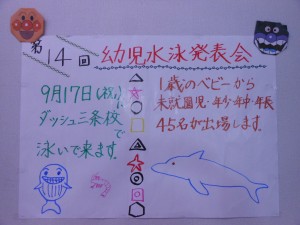 第14回 幼児水泳発表会
9月17日(祝)に
ダッシュ三条校で
泳いで来ます。
1歳のベビーから
未就園児・年少・年中・年長
45名が出場します。